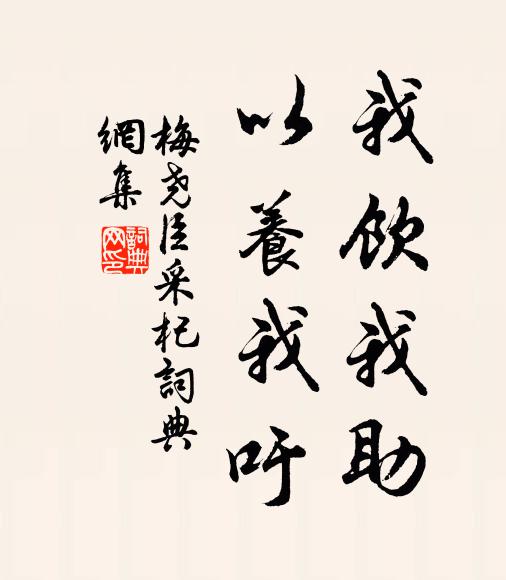 我饮我助
以養我吁
梅尧臣采杞詞典
網集
詞典
网印